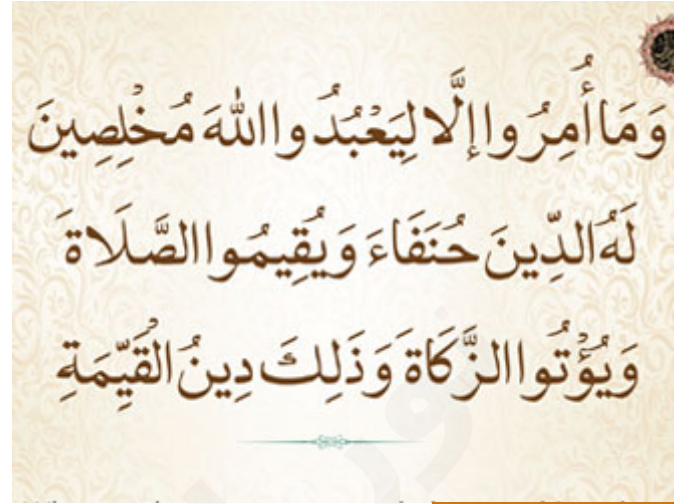 وَمَا أُمِرُوا إِلَّا لِيَعْبُدُوا اللَّهَ مُخْلِصِينَ
لَهُ الدِّينَ حُنَفَاءَ وَيُقِيمُوا الصَّلَاةَ
وَيُؤْتُوا الزَّكَاةَ وَذَلِكَ دِينُ الْقَيِّمَةِ